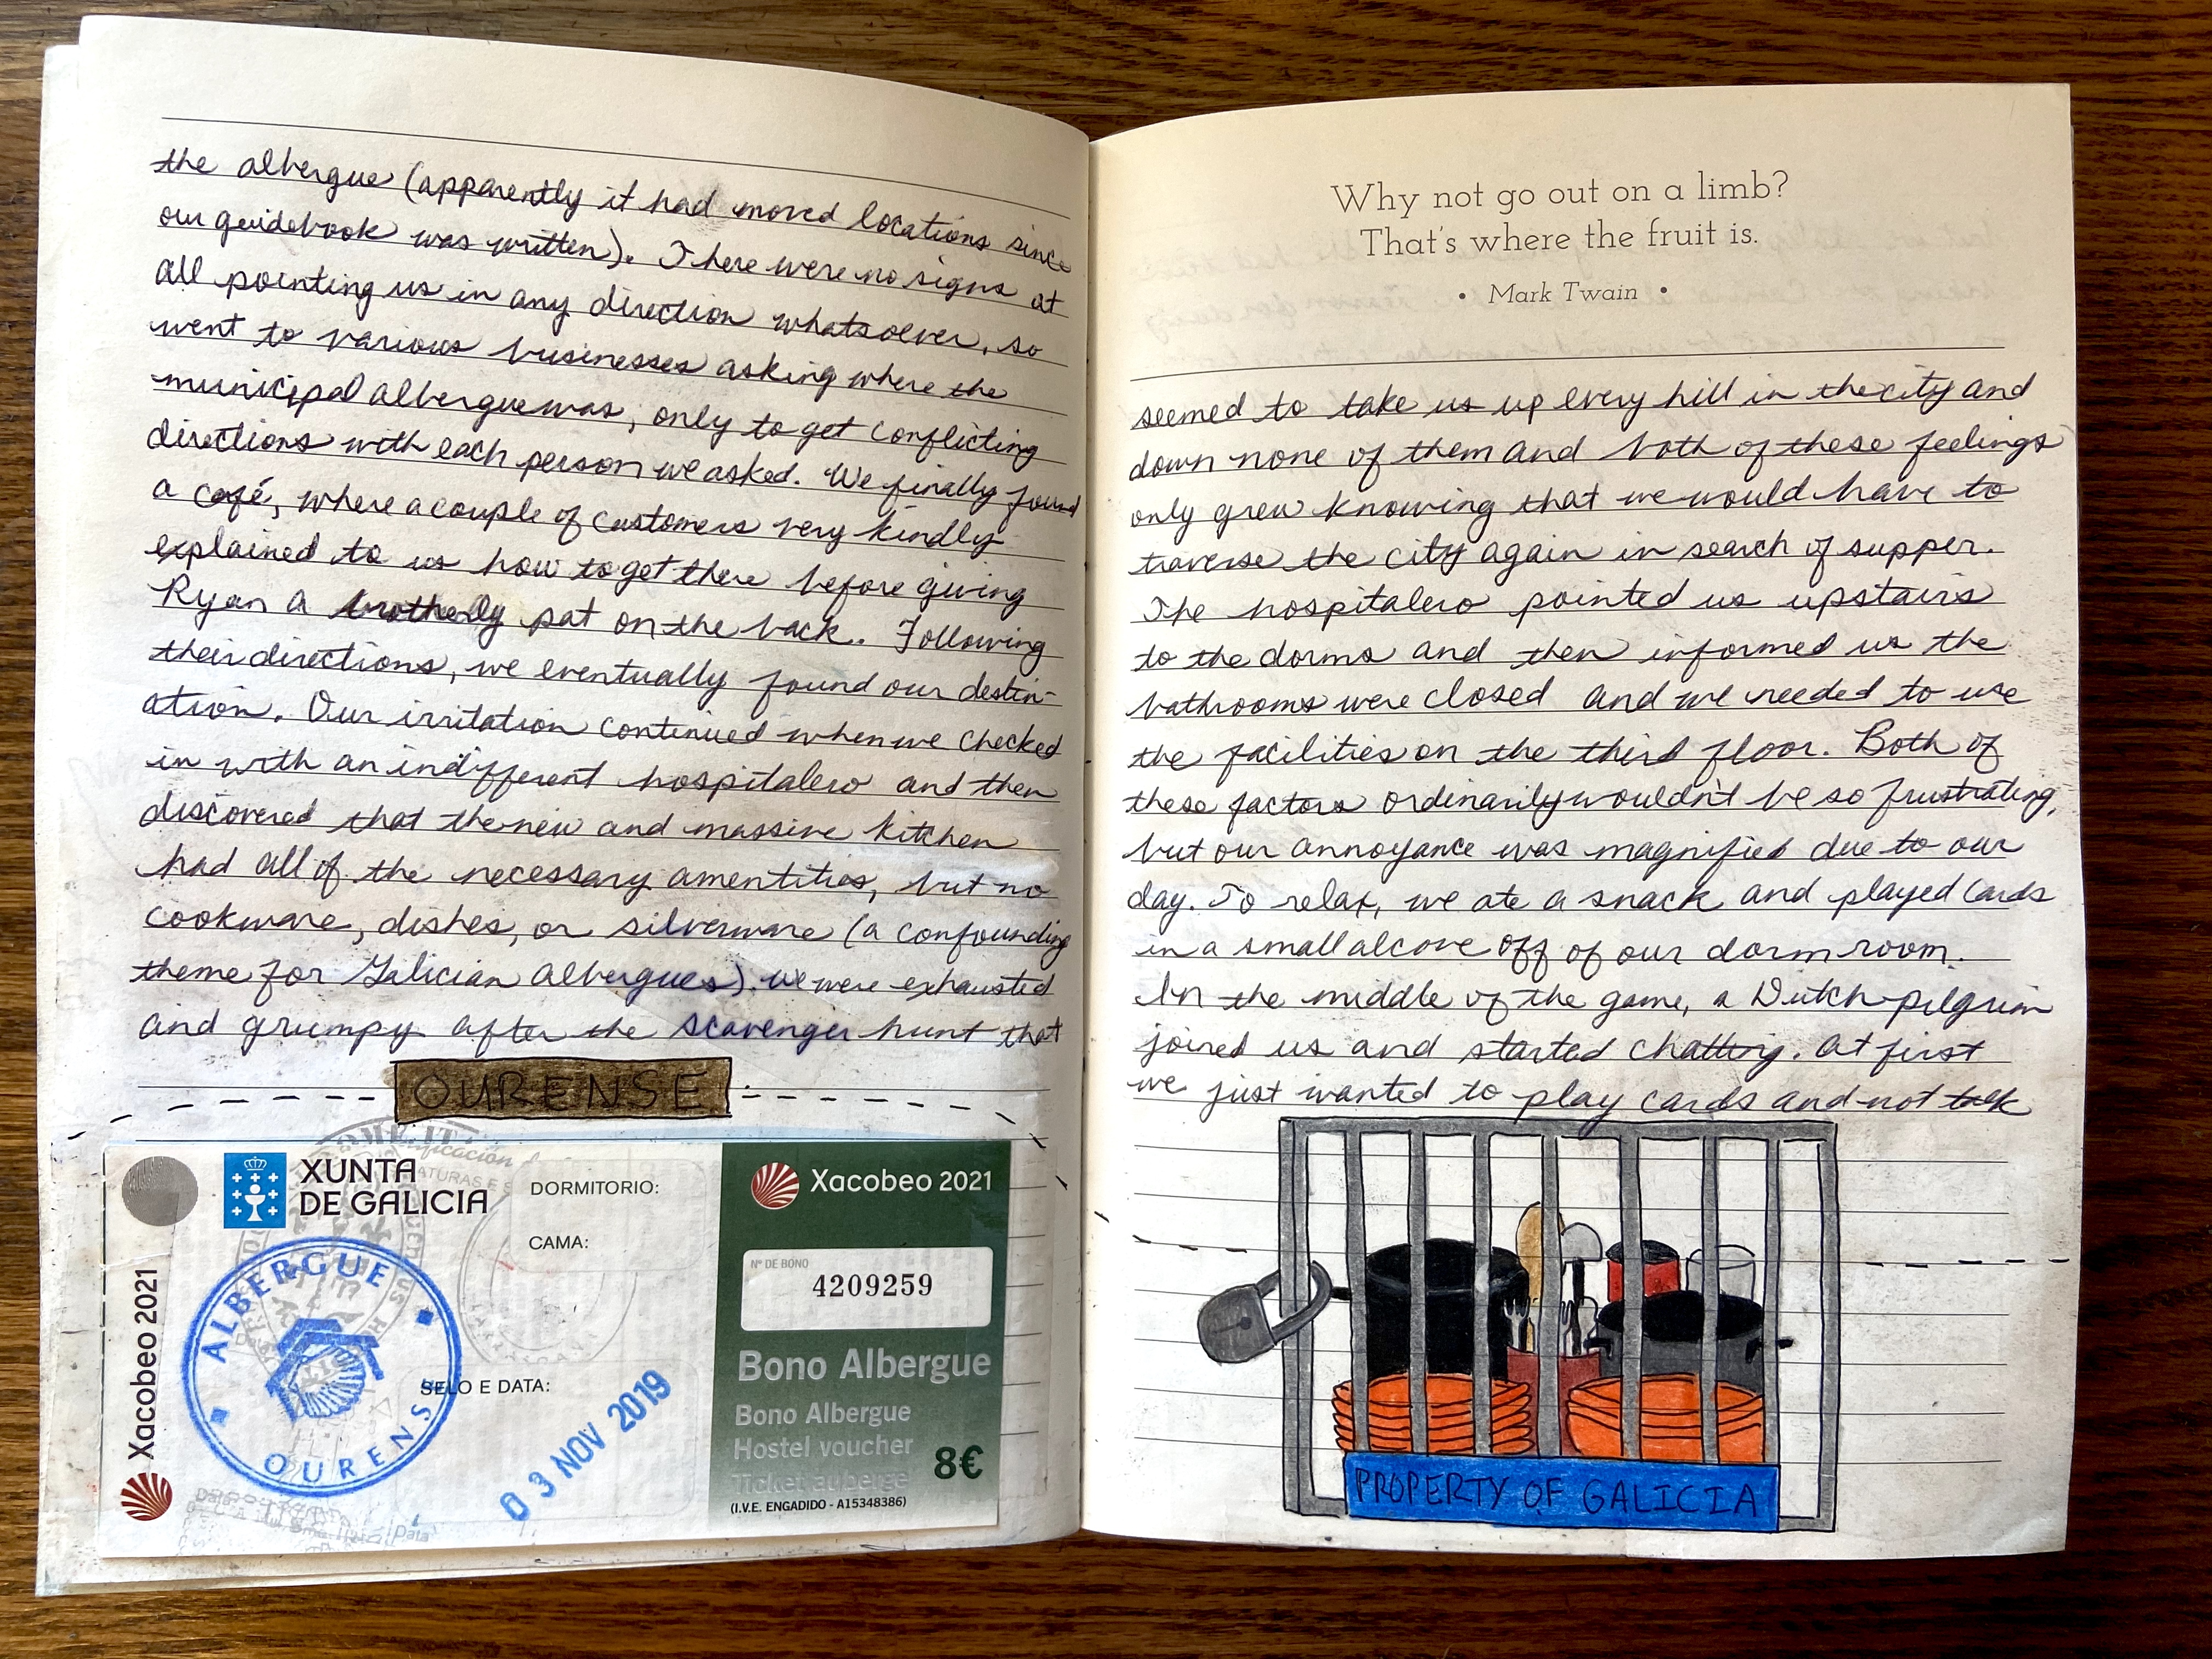 the albergue (apparently it had moved locations since
our guidebook was written). There were no signs at
all pointing us in any direction whatsoever, so
went to various businesses asking where the
municipal albergue was, only to get conflicting
directions with each person we asked. We finally found
a café, where a couple of customers very kindly
explained to us how to get there before giving
Ryan a brotherly pat on the back. Following
their directions, we eventually found our destin-
ation. Our irritation continued when we checked
in with an indifferent hospitalero and then
discovered that the new and massive kitchen
had all of the necessary amentities, but no
cookware, dishes, or silverware (a confounding
theme for Galician albergues). We were exhausted
and grumpy after the scavenger hunt that
OURENSE
XUNTA
DE GALICIA
DORMITORIO:
CAMA:
SELO E DATA:
Xacobeo 2021
ALBERGUE
OURENSE
03 NOV 2019
Xacobeo 2021
Nº DE BONO
4209259
Bono Albergue
Bono Albergue
Hostel voucher
Ticket auberge
8€
(I.V.E. ENGADIDO - A15348386)
Why not go out on a limb?
That's where the fruit is.
• Mark Twain •
seemed to take us up every hill in the city and
down none of them and both of these feelings
only grew knowing that we would have to
traverse the city again in search of supper.
The hospitalero pointed us upstairs
to the dorms and then informed us the
bathrooms were closed and we needed to use
the facilities on the third floor. Both of
these factors ordinarily wouldn't be so frustrating,
but our annoyance was magnified due to our
day. To relax, we ate a snack and played cards
in a small alcove off of our dorm room.
In the middle of the game, a Dutch pilgrim
joined us and started chatting. At first
we just wanted to play cards and not talk
PROPERTY OF GALICIA